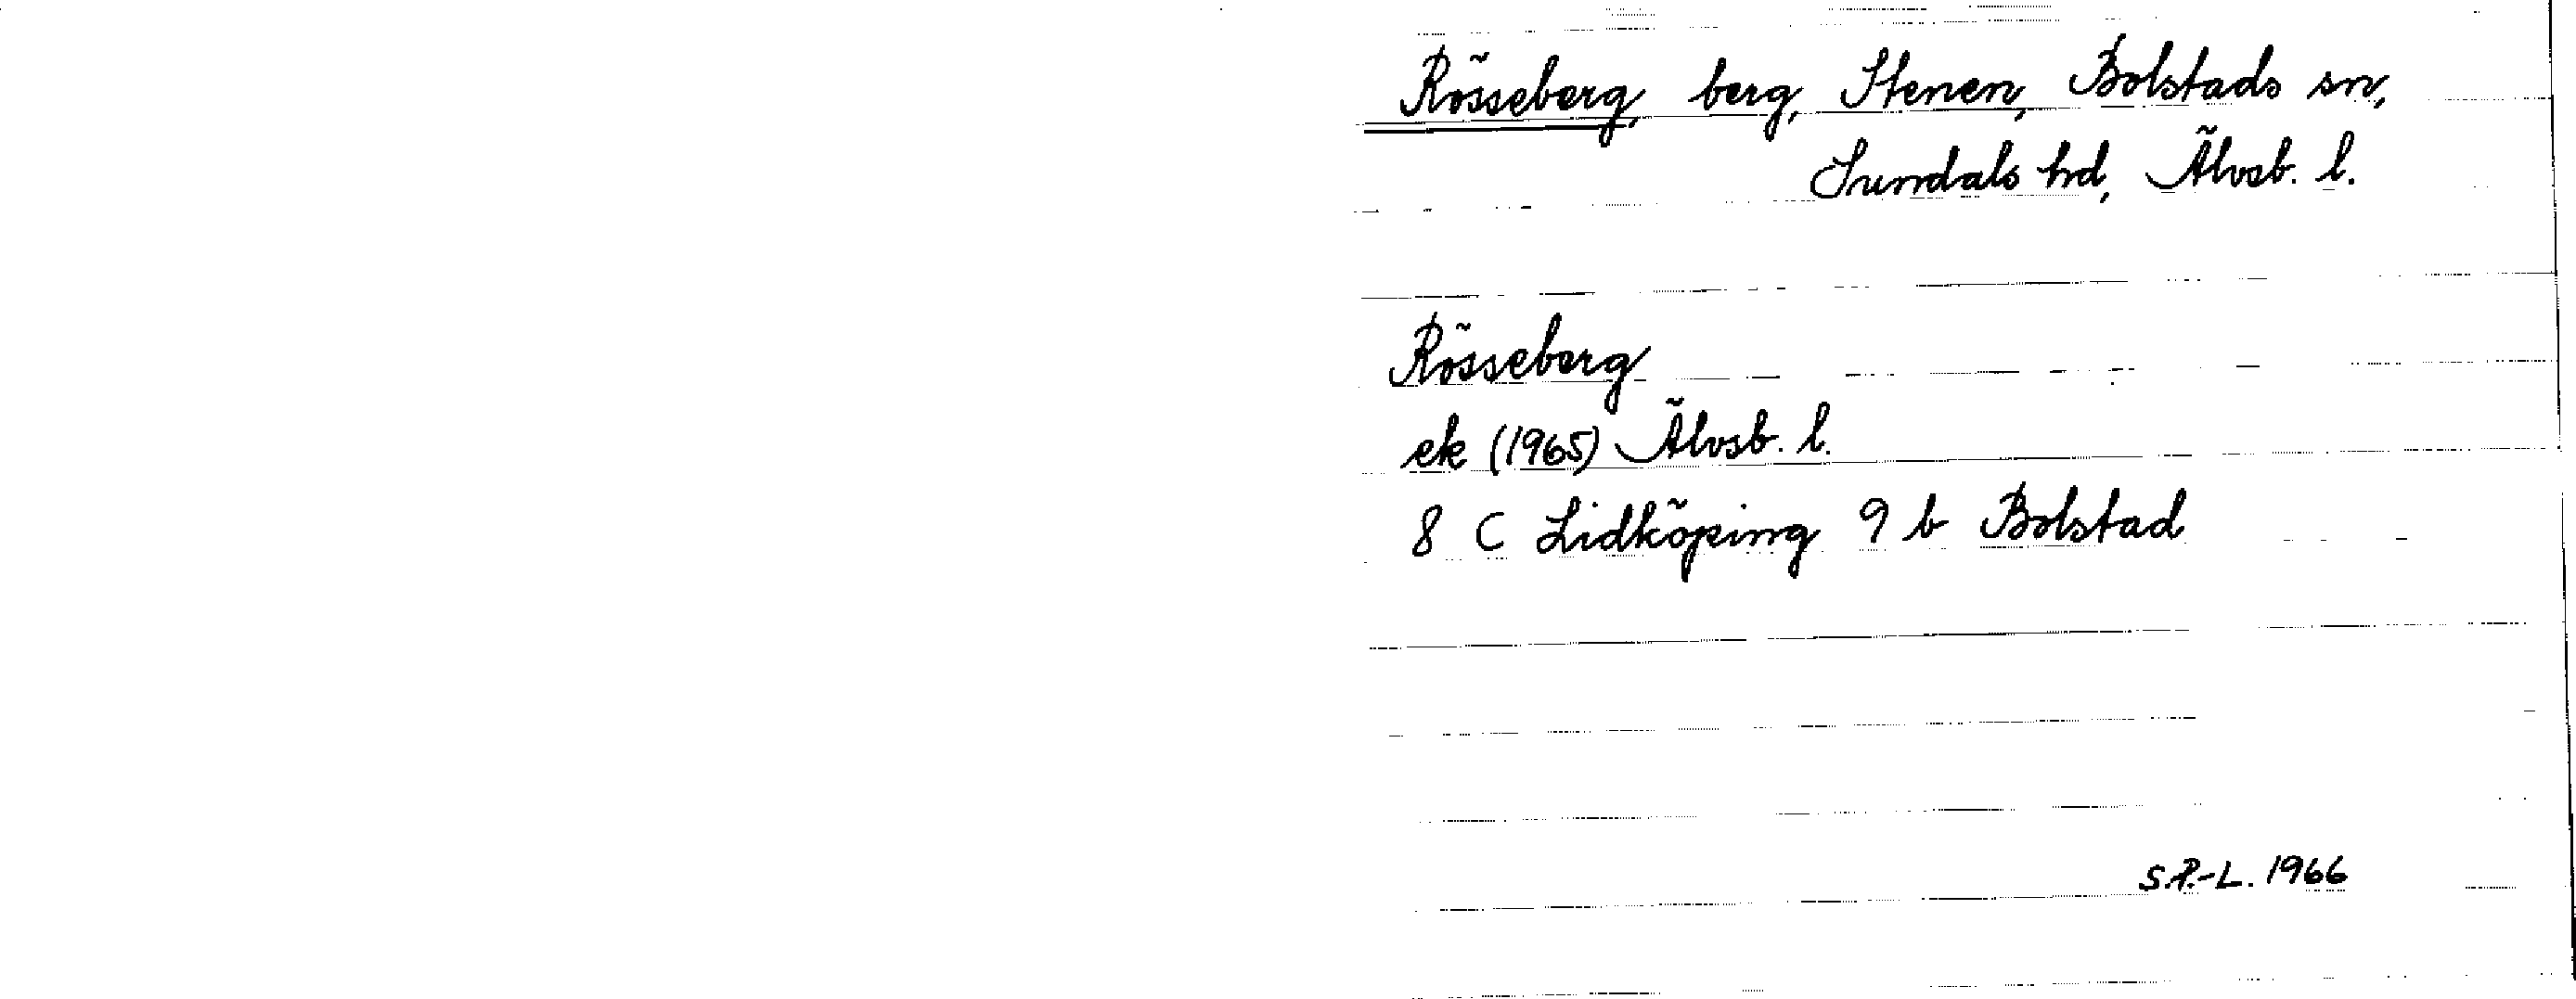 Rösseberg, berg, Stenen, Bolstads sn,
Sundals hd, Älvsb. l.
Rösseberg
ek (1965) Älvsb. l.
8 C Lidköping 9 b Bolstad
S.P.-L. 1966